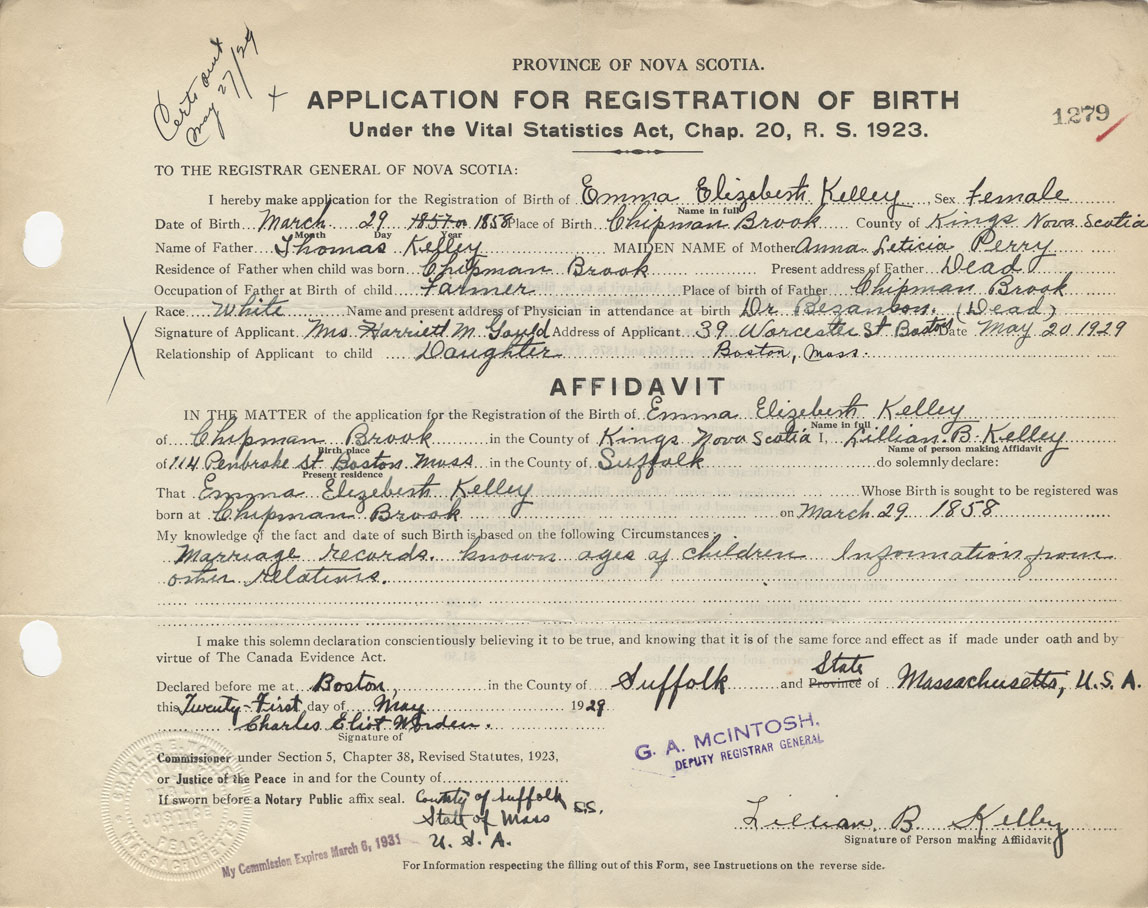 Certs out
May 27/29
PROVINCE OF NOVA SCOTIA.
+ APPLICATION FOR REGISTRATION OF BIRTH
1279
Under the Vital Statistics Act, Chap. 20, R. S. 1923.
TO THE REGISTRAR GENERAL OF NOVA SCOTIA:
I hereby make application for the Registration of Birth of Emma Elizebeth Kelley Sex Female
Name in full
Date of Birth March 29 1857 or 1858 Place of Birth Chipman Brook County of Kings Nova Scotia
Month Day Year
Name of Father Thomas Kelley MAIDEN NAME of Mother Anna Leticia Perry
Residence of Father when child was born Chipman Brook Present address of Father Dead
Occupation of Father at Birth of child Farmer Place of birth of Father Chipman Brook
Race White Name and present address of Physician in attendance at birth Dr Bezanson. (Dead)
X Signature of Applicant Mrs Harriett M. Gould Address of Applicant 39 Worcester St Boston Date May 20 1929
Relationship of Applicant to child Daughter Boston, Mass.
AFFIDAVIT
IN THE MATTER of the application for the Registration of the Birth of Emma Elizebeth Kelley
Name in full
of Chipman Brook in the County of Kings Nova Scotia I, Lillian B. Kelley
Birth place Name of person making Affidavit
of 114 Penbroke St Boston Mass in the County of Suffolk do solemnly declare:
Present residence
That Emma Elizebeth Kelley Whose Birth is sought to be registered was
born at Chipman Brook on March 29 1858
My knowledge of the fact and date of such Birth is based on the following Circumstances:
Marriage records. known ages of children Information from
other relations.
I make this solemn declaration conscientiously believing it to be true, and knowing that it is of the same force and effect as if made under oath and by
virtue of The Canada Evidence Act.
State
Declared before me at Boston, in the County of Suffolk and Province of Massachusetts, U.S.A.
this Twenty-First day of May 1929
Charles Eliot Worden.
Signature of
G. A. McINTOSH.
DEPUTY REGISTRAR GENERAL
Commissioner under Section 5, Chapter 38, Revised Statutes, 1923,
or Justice of the Peace in and for the County of
If sworn before a Notary Public affix seal. County of Suffolk S.S.
State of Mass
U.S.A.
JUSTICE
PEACE
MASSACHUSETTS
My Commission Expires March 6, 1931
Lillian. B. Kelley
Signature of Person making Affiidavit
For Information respecting the filling out of this Form, see Instructions on the reverse side.